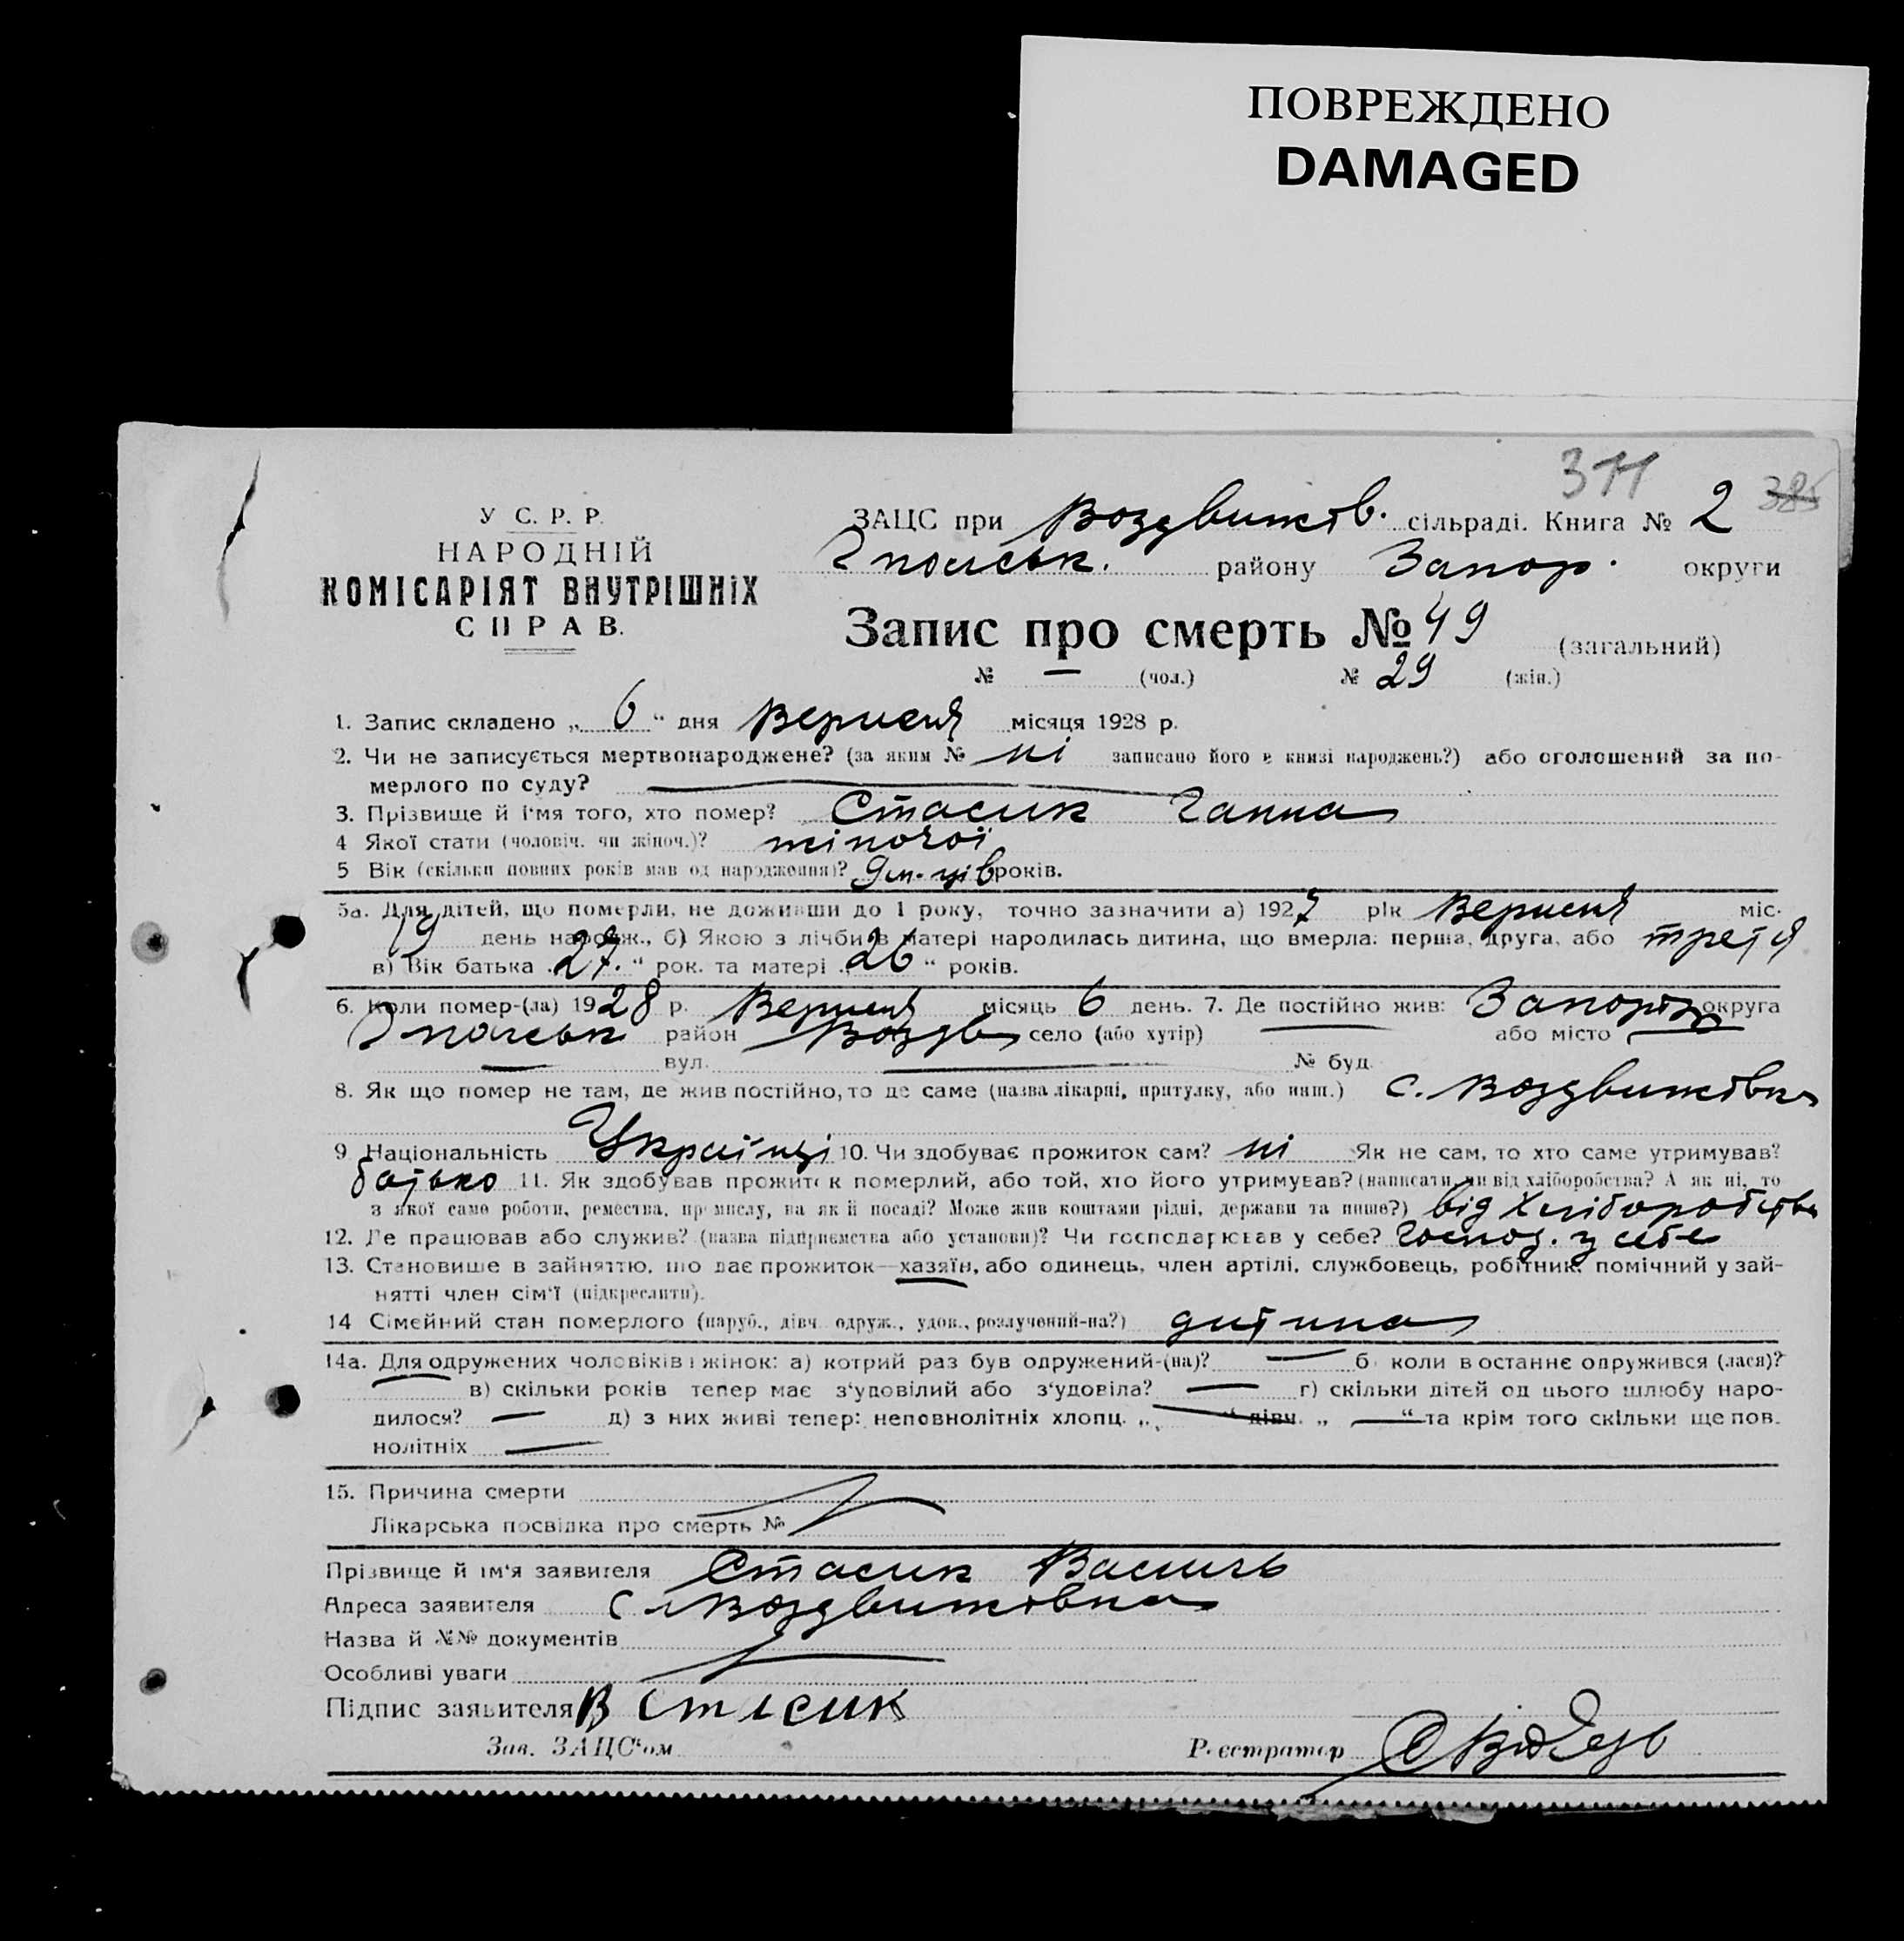 ПОВРЕЖДЕНО
DAMAGED
311
385
У С. Р. Р.
НАРОДНІЙ
КОМІСАРІЯТ ВНУТРІШНІХ
СПРАВ.
ЗАЦС при Воздвижів. сільраді. Книга № 2
району Запор. округи
Запис про смерть № 49 (загальний)
№ — (чол.) № 29 (жін.)
1. Запис складено „ 6 “ дня Вересня місяця 1928 р.
2. Чи не записується мертвонароджене? (за яким № ні записано його в книзі народжень?) або оголошений за по-
мерлого по суду? —
3. Прізвище й ім'я того, хто помер? Стасик Ганна
4 Якої стати (чоловіч. чи жіноч.)? жіночої
5 Вік (скільки повних років мав од народження)? років.
5а. Для дітей, що померли, не доживши до 1 року, точно зазначити а) 1927 рік Вересня міс.
19 день народж., б) Якою з лічби в матері народилась дитина, що вмерла: перша, друга, або третя
в) Вік батька „27.“ рок. та матері „26“ років.
6. Коли помер-(ла) 1928 р. Вересня місяць 6 день. 7. Де постійно жив: Запоріз округа
район Воздв село (або хутір) — або місто —
— вул. — № буд.
8. Як що помер не там, де жив постійно, то де саме (назва лікарні, притулку, або инш.) с. Воздвижівка
9 Національність Українці 10. Чи здобував прожиток сам? ні Як не сам, то хто саме утримував?
батько 11. Як здобував прожиток померлий, або той, хто його утримував? (написати, чи від хліборобства? А як ні, то
з якої само роботи, ремества, промислу, на якій посаді? Може жив коштами рідні, держави та инше?) від Хліборобства
12. Де працював або служив? (назва підприємства або установи)? Чи господарював у себе? Господ. у себе
13. Становище в зайняттю, що дає прожиток—хазяїн, або одинець, член артілі, службовець, робітник, помічний у зай-
нятті член сім'ї (підкреслити).
14 Сімейний стан померлого (паруб., дівч. одруж., удов., розлучений-на?) дитина
14а. Для одружених чоловіків і жінок: а) котрий раз був одружений-(на)? — б) коли востаннє одружився (лася)?
— в) скільки років тепер має з'удовілий або з'удовіла? — г) скільки дітей од цього шлюбу наро-
дилося? — д) з них живі тепер: неповнолітніх хлопц. „ — “ дівч. „ — “ та крім того скільки ще пов.
нолітніх —
15. Причина смерти
Лікарська посвідка про смерть №
Прізвище й ім'я заявителя Стасик Василь
Адреса заявителя с. Воздвижівка
Назва й №№ документів
Особливі уваги
Підпис заявителя В Стасик
Зав. ЗАЦС'ом Реєстратор